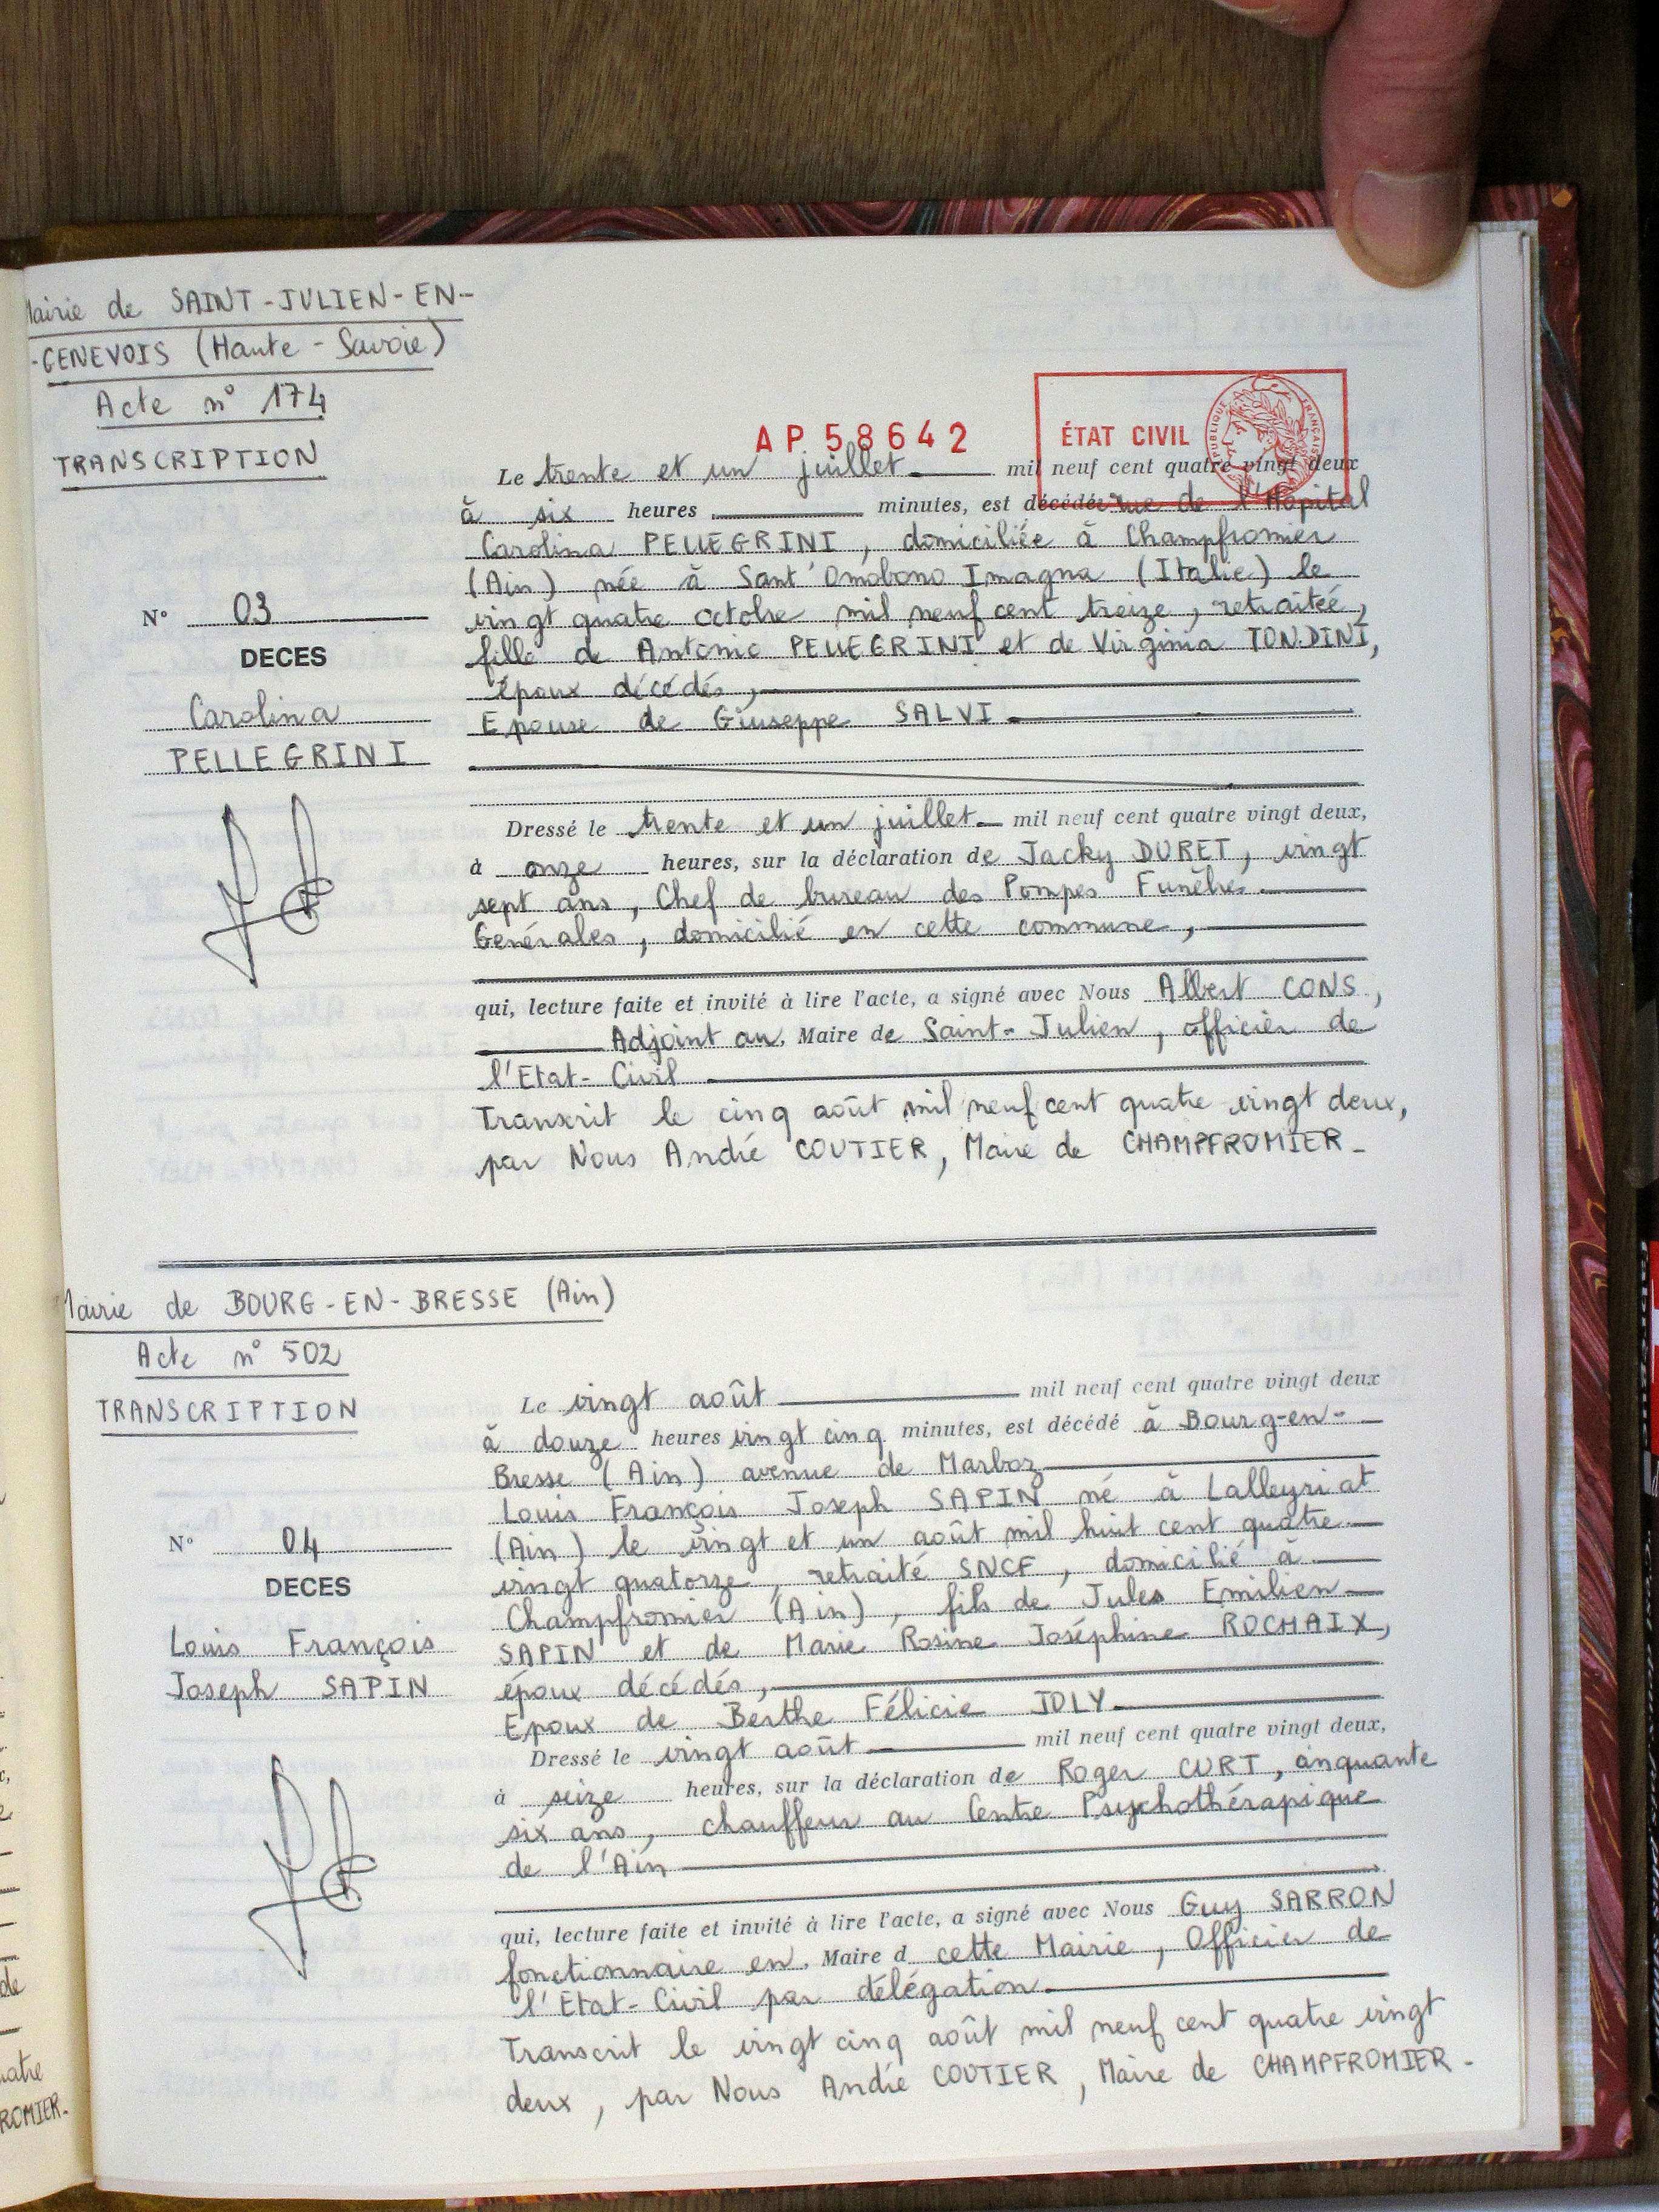 Mairie de SAINT-JULIEN-EN-
-GENEVOIS (Haute-Savoie)
Acte n° 174
TRANSCRIPTION
AP 58642
ÉTAT CIVIL
RÉPUBLIQUE FRANÇAISE
Le trente et un juillet mil neuf cent quatre vingt deux
à six heures minutes, est décédée rue de l'Hôpital
Carolina PELLEGRINI, domiciliée à Champfromier
(Ain) née à Sant'Omobono Imagna (Italie) le
vingt quatre octobre mil neuf cent treize, retraitée,
fille de Antonio PELLEGRINI et de Virginia TONDINI,
époux décédés,
Epouse de Giuseppe SALVI
N° 03
DECES
Carolina
PELLEGRINI
Dressé le trente et un juillet mil neuf cent quatre vingt deux,
à onze heures, sur la déclaration de Jacky DURET, vingt
sept ans, Chef de bureau des Pompes Funèbres
Générales, domicilié en cette commune,
qui, lecture faite et invité à lire l'acte, a signé avec Nous Albert CONS,
Adjoint au, Maire de Saint-Julien, officier de
l'Etat-Civil
Transcrit le cinq août mil neuf cent quatre vingt deux,
par Nous André COUTIER, Maire de CHAMPFROMIER-
Mairie de BOURG-EN-BRESSE (Ain)
Acte n° 502
TRANSCRIPTION
Le vingt août mil neuf cent quatre vingt deux
à douze heures vingt cinq minutes, est décédé à Bourg-en-
Bresse (Ain) avenue de Marboz
Louis François Joseph SAPIN né à Lalleyriat
(Ain) le vingt et un août mil huit cent quatre
vingt quatorze, retraité SNCF, domicilié à
Champfromier (Ain), fils de Jules Emilien
SAPIN et de Marie Rosine Joséphine ROCHAIX,
époux décédés,
Epoux de Berthe Félicie JOLY
N° 04
DECES
Louis François
Joseph SAPIN
Dressé le vingt août mil neuf cent quatre vingt deux,
à seize heures, sur la déclaration de Roger CURT, cinquante
six ans, chauffeur au Centre Psychothérapique
de l'Ain
qui, lecture faite et invité à lire l'acte, a signé avec Nous Guy SARRON
fonctionnaire en, Maire d cette Mairie, Officier de
l'Etat-Civil par délégation
Transcrit le vingt cinq août mil neuf cent quatre vingt
deux, par Nous André COUTIER, Maire de CHAMPFROMIER-